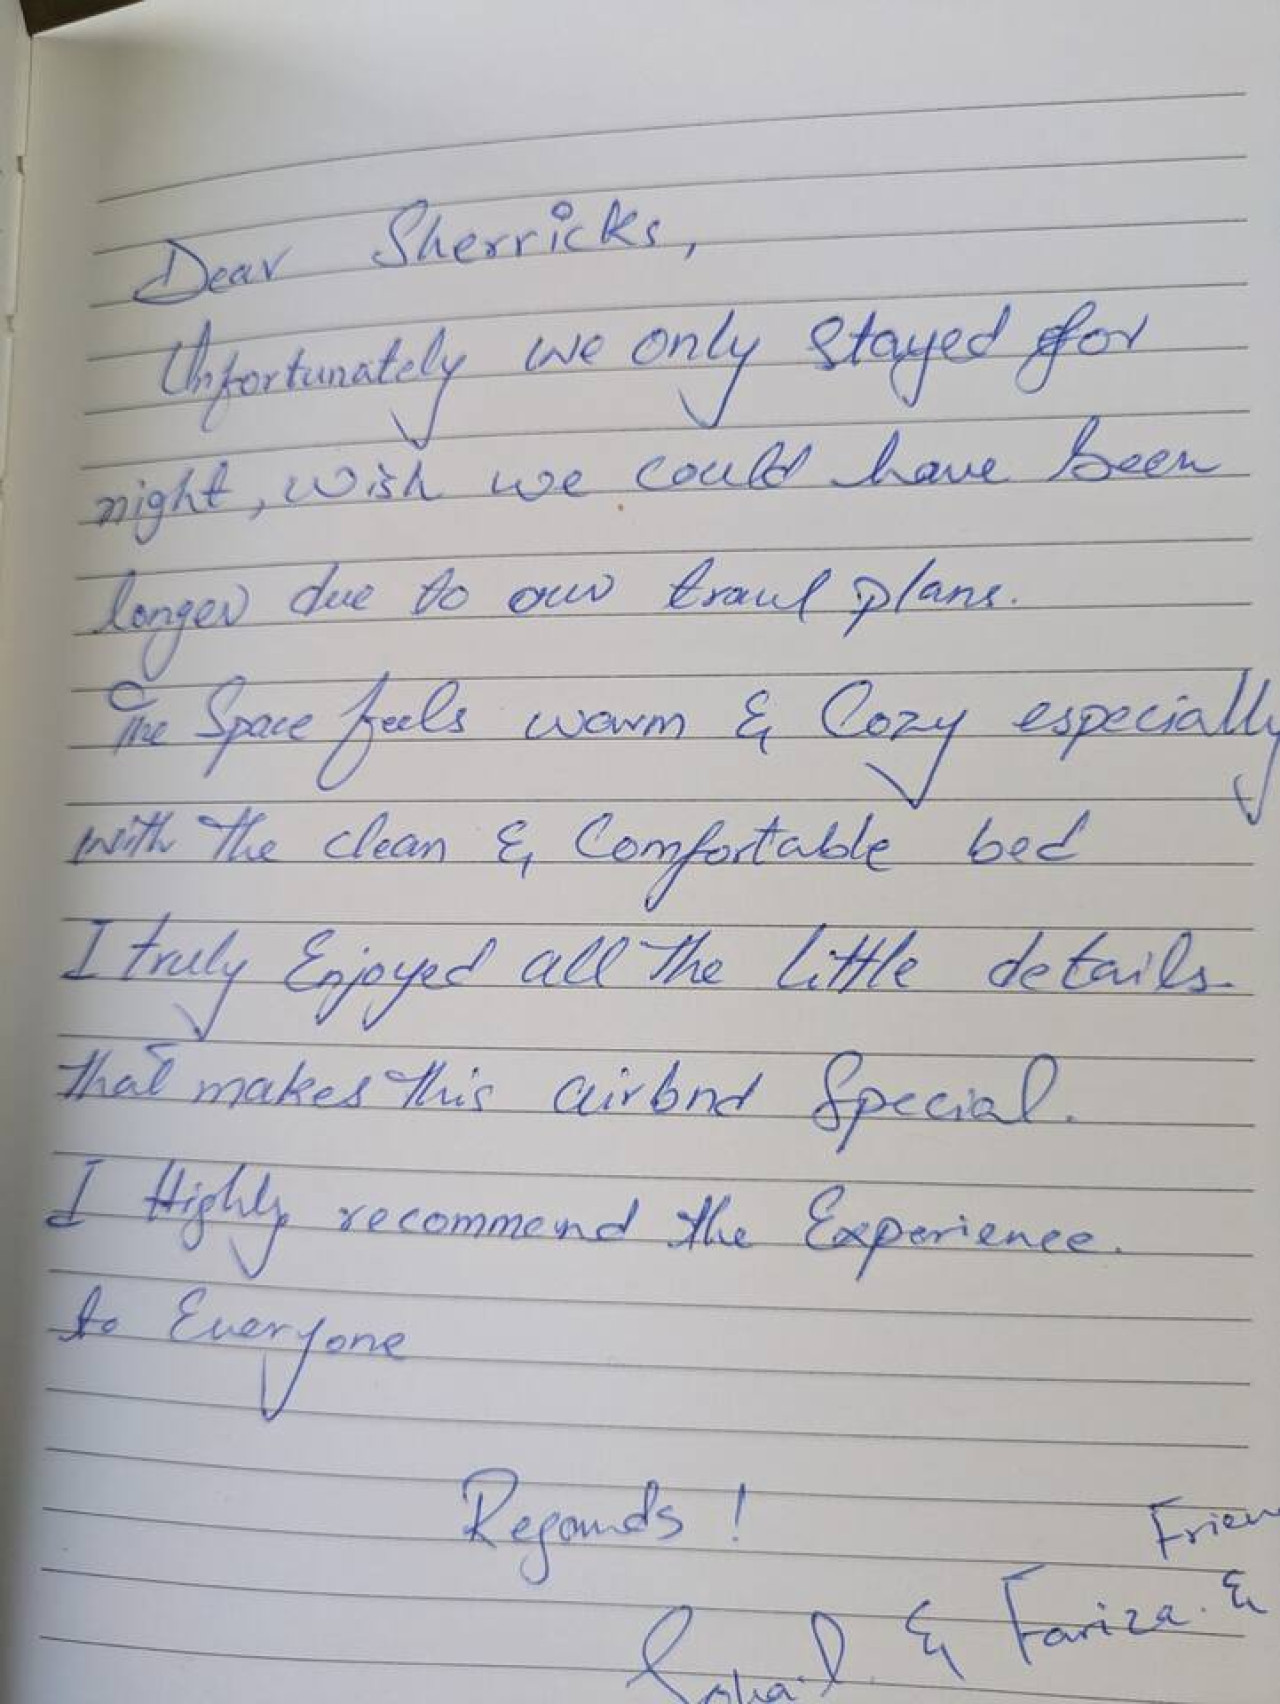 Dear Sherricks,
Unfortunately we only stayed for
night, wish we could have been
longer due to our travel plans.
The Space feels warm & Cozy especially
with the clean & Comfortable bed
I truly Enjoyed all the little details
that makes this airbnd Special.
I Highly recommend the Experience.
to Everyone
Regards !
Frien
Sohail & Fariza. &